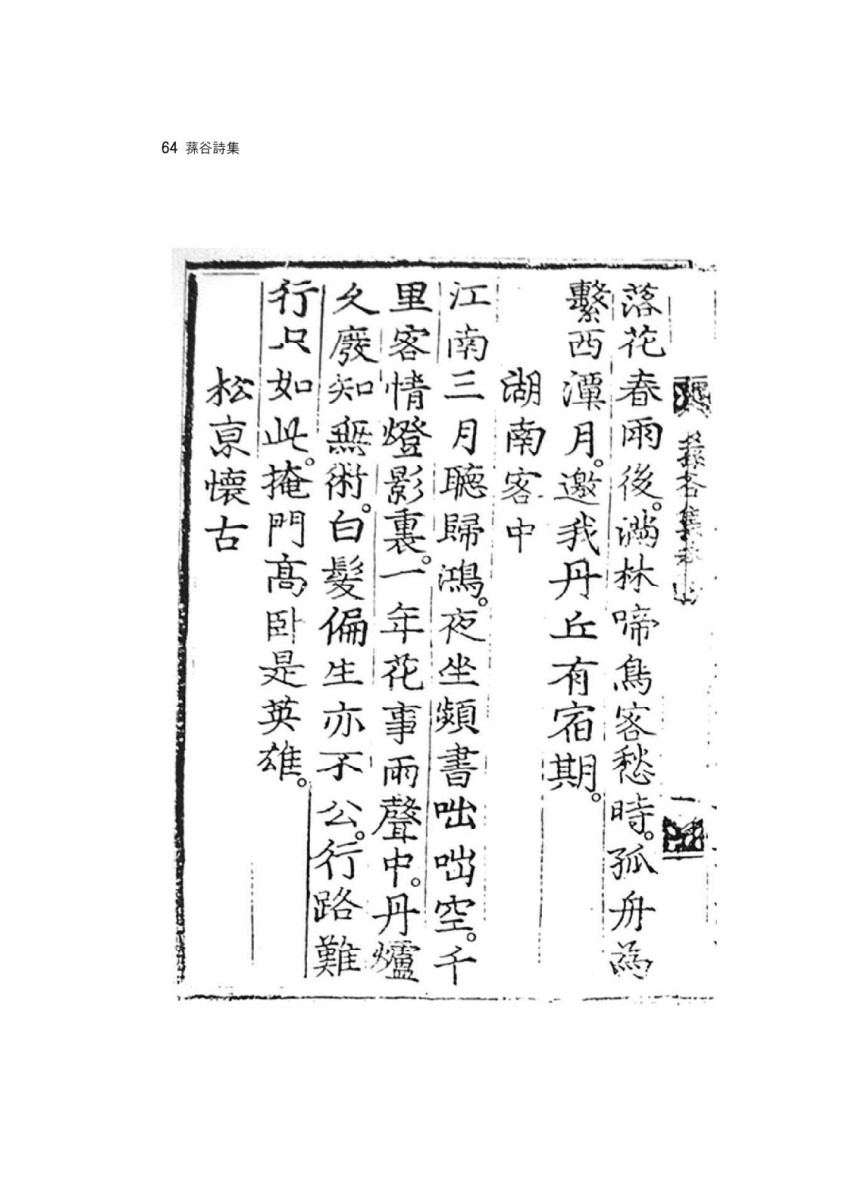 64 蓀谷詩集
落花春雨後。滿林啼鳥客愁時。孤舟為
繫西潭月。邀我丹丘有宿期。
湖南客中
江南三月聽歸鴻。夜坐頻書咄咄空。千
里客情燈影裏。一年花事雨聲中。丹爐
久廢知無術。白髮偏生亦不公。行路難
行只如此。掩門高臥是英雄。
松京懷古